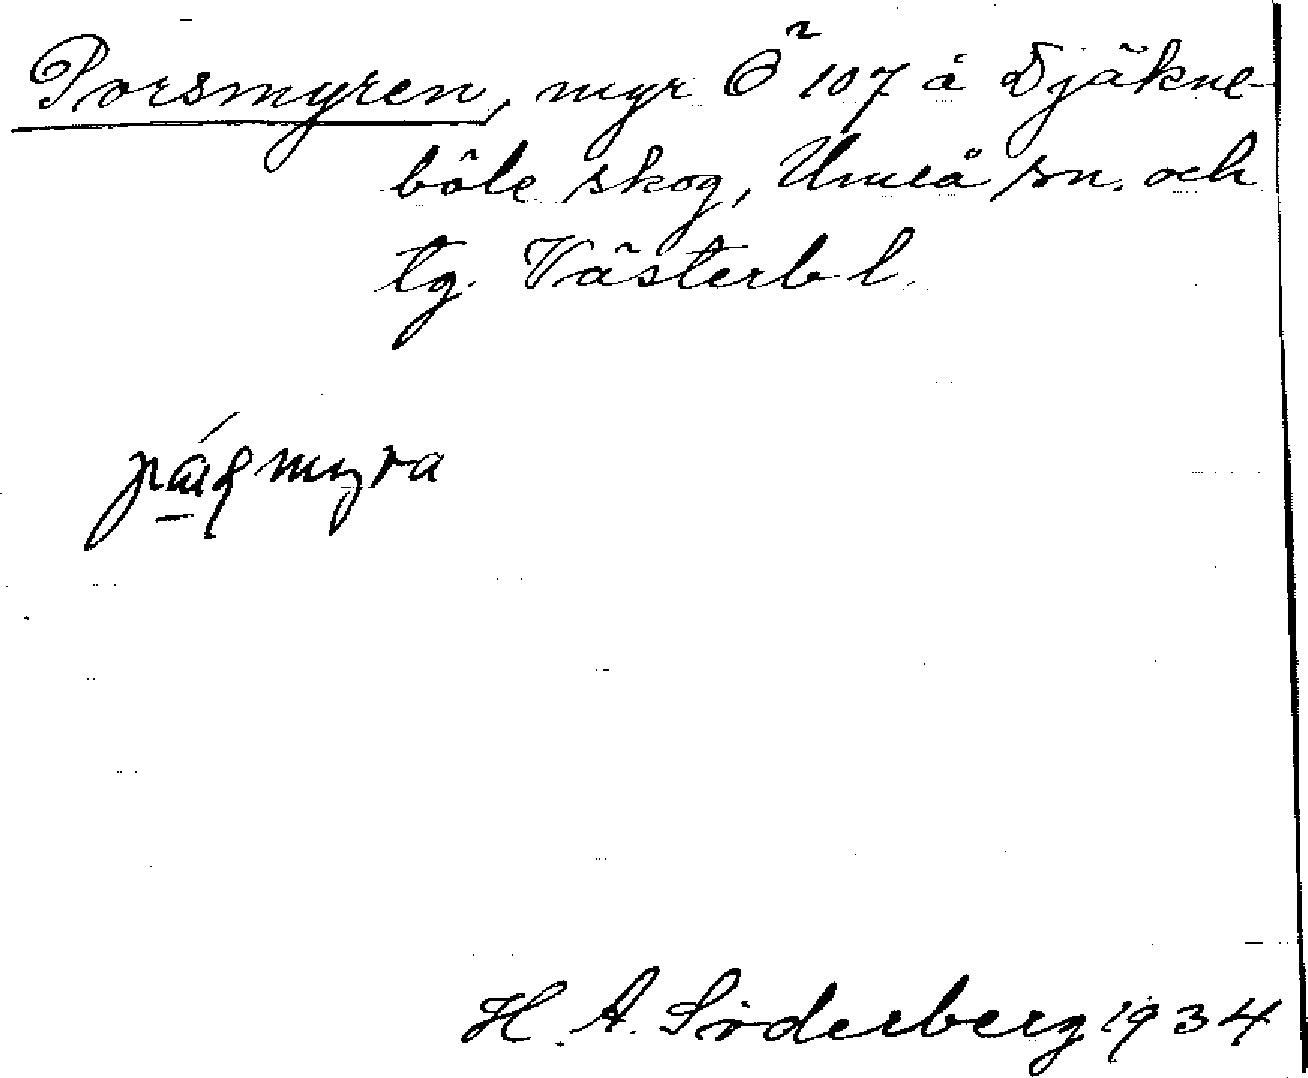 Porsmyren, myr Ö² 107 å Djäkne-
böle skog, Umeå sn. och
tg. Västerb l.
myra
H. A. Söderberg 1934